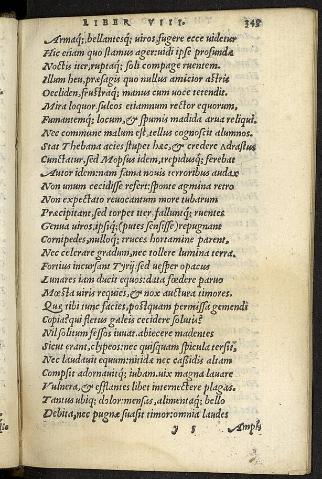 LIBER VIII. 345
Armaq; bellantesq; uiros, fugere ecce uidetur
Hic etiam quo stamus ager: uidi ipse profundæ
Noctis iter, ruptaq; soli compage ruentem.
Illum heu, præsagis quo nullus amicior astris
Oecliden, frustraq; manus cum uoce tetendit.
Mira loquor, sulcos etiamnum rector equorum,
Fumantemq; locum, & spumis madida arua reliqui.
Nec commune malum est, tellus cognoscit alumnos.
Stat Thebana acies stupet hæc, & credere Adrastus
Cunctatur, sed Mopsus idem, trepidusq; ferebat
Autor idem: nam fama nouis terroribus audax
Non unum cecidisse refert: sponte agmina retro
Non expectato reuocantum more tubarum
Præcipitant, sed torpet iter, falluntq; ruentes
Genua uiros, ipsiq; (putes sensisse) repugnant
Cornipedes, nulloq; truces hortamine parent,
Nec celerare gradum, nec tollere lumina terra.
Fortius incursant Tyrij: sed uesper opacus
Lunares iam ducit equos: data fœdere paruo
Mœsta uiris requies, & nox auctura timores.
Quæ tibi tunc facies, postquam permissa gemendi
Copia: qui fletus galeis cecidere solutis?
Nil solitum fessos iuuat. abiecere madentes
Sicut erant, clypeos: nec quisquam spicula tersit,
Nec laudauit equum: nitidæ nec cassidis altam
Compsit adornauitq; iubam. uix magna lauare
Vulnera, & efflantes libet internectere plagas.
Tantus ubiq; dolor: mensas, alimentaq; bello
Debita, nec pugnæ suasit timor: omnia laudes
y 5 Amph